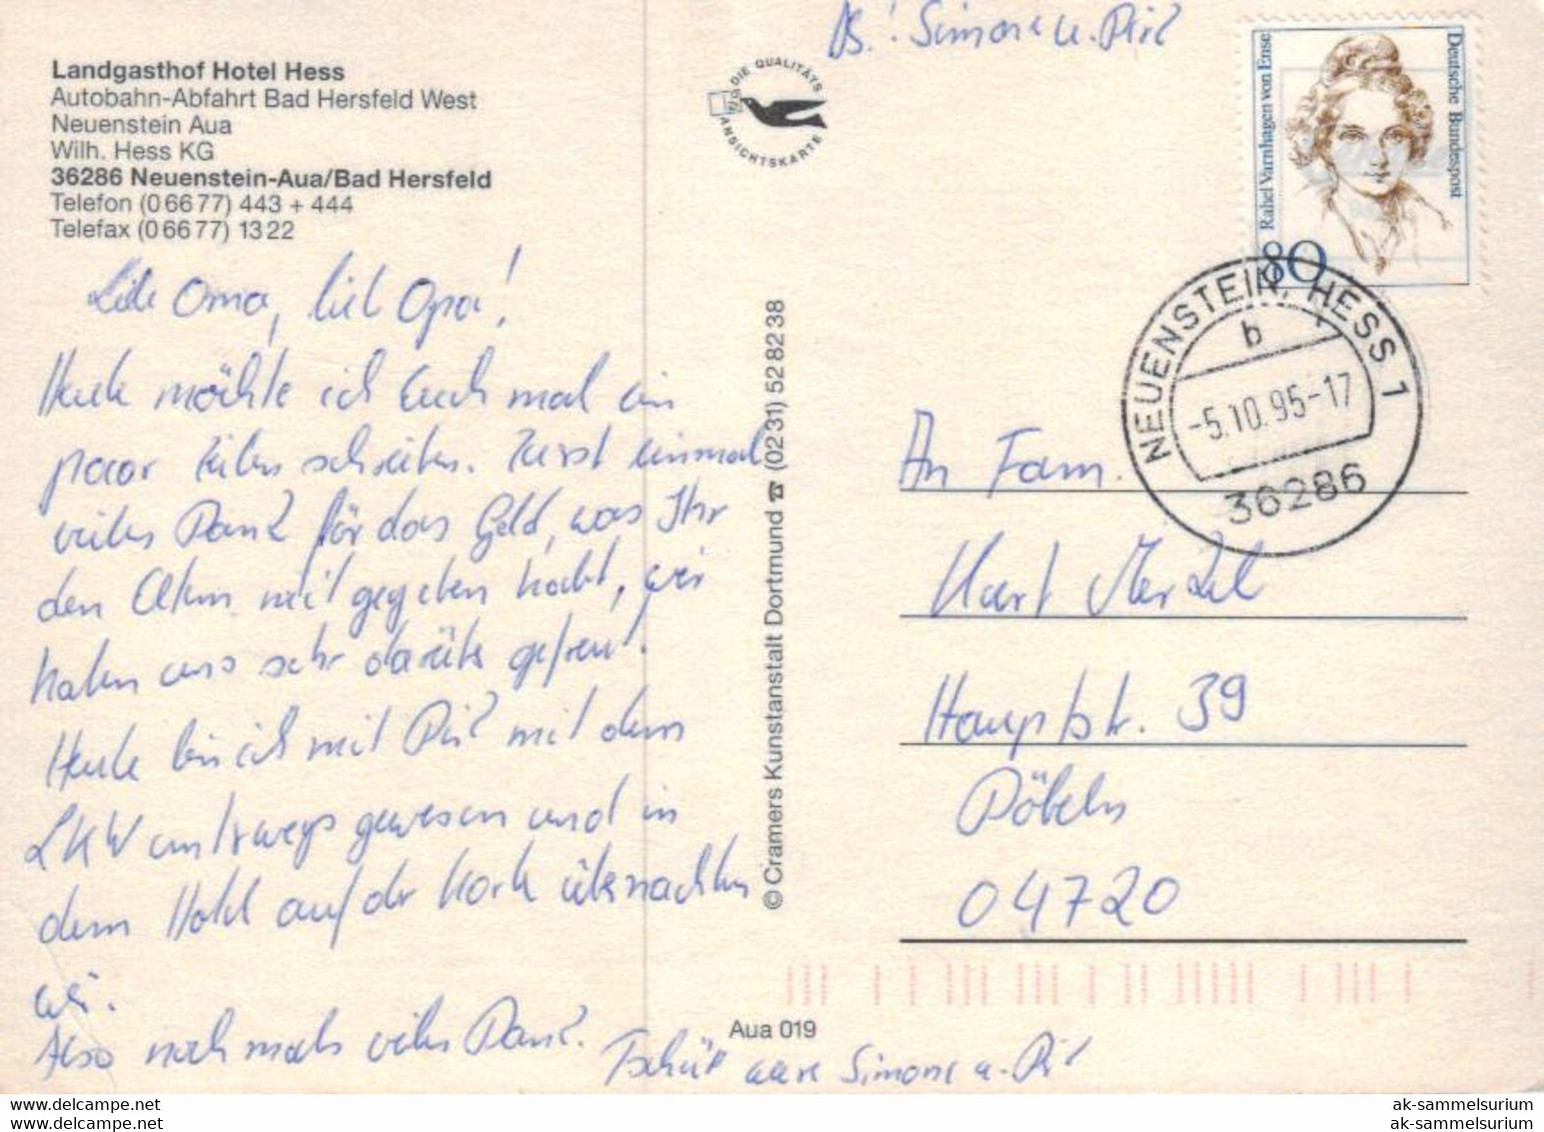 Landgasthof Hotel Hess
Autobahn-Abfahrt Bad Hersfeld West
Neuenstein Aua
Wilh. Hess KG
36286 Neuenstein-Aua/Bad Hersfeld
Telefon (0 66 77) 443 + 444
Telefax (0 66 77) 13 22
Liebe Oma, lieber Opa!
Heute möchte ich Euch mal ein
paar Zeilen schreiben. Zuerst einmal
vielen Dank für das Geld, was Ihr
den Eltern mit gegeben habt, wir
haben uns sehr darüber gefreut.
Heute bin ich mit Dirk mit dem
LKW unterwegs gewesen und in
dem Hotel auf der Karte übernachten
wir.
Also noch mals vielen Dank.
Tschüß eure Simone u. Dirk
Abs.: Simone u. Dirk
DIE QUALITÄTS
ANSICHTSKARTE
© Cramers Kunstanstalt Dortmund ☎ (02 31) 52 82 38
Aua 019
Rahel Varnhagen von Ense
Deutsche Bundespost
80
NEUENSTEIN, HESS 1
b
-5.10.95-17
36286
An Fam.
Kurt Merzel
Hauptstr. 39
Döbeln
04720
www.delcampe.net
ak-sammelsurium
www.delcampe.net
ak-sammelsurium